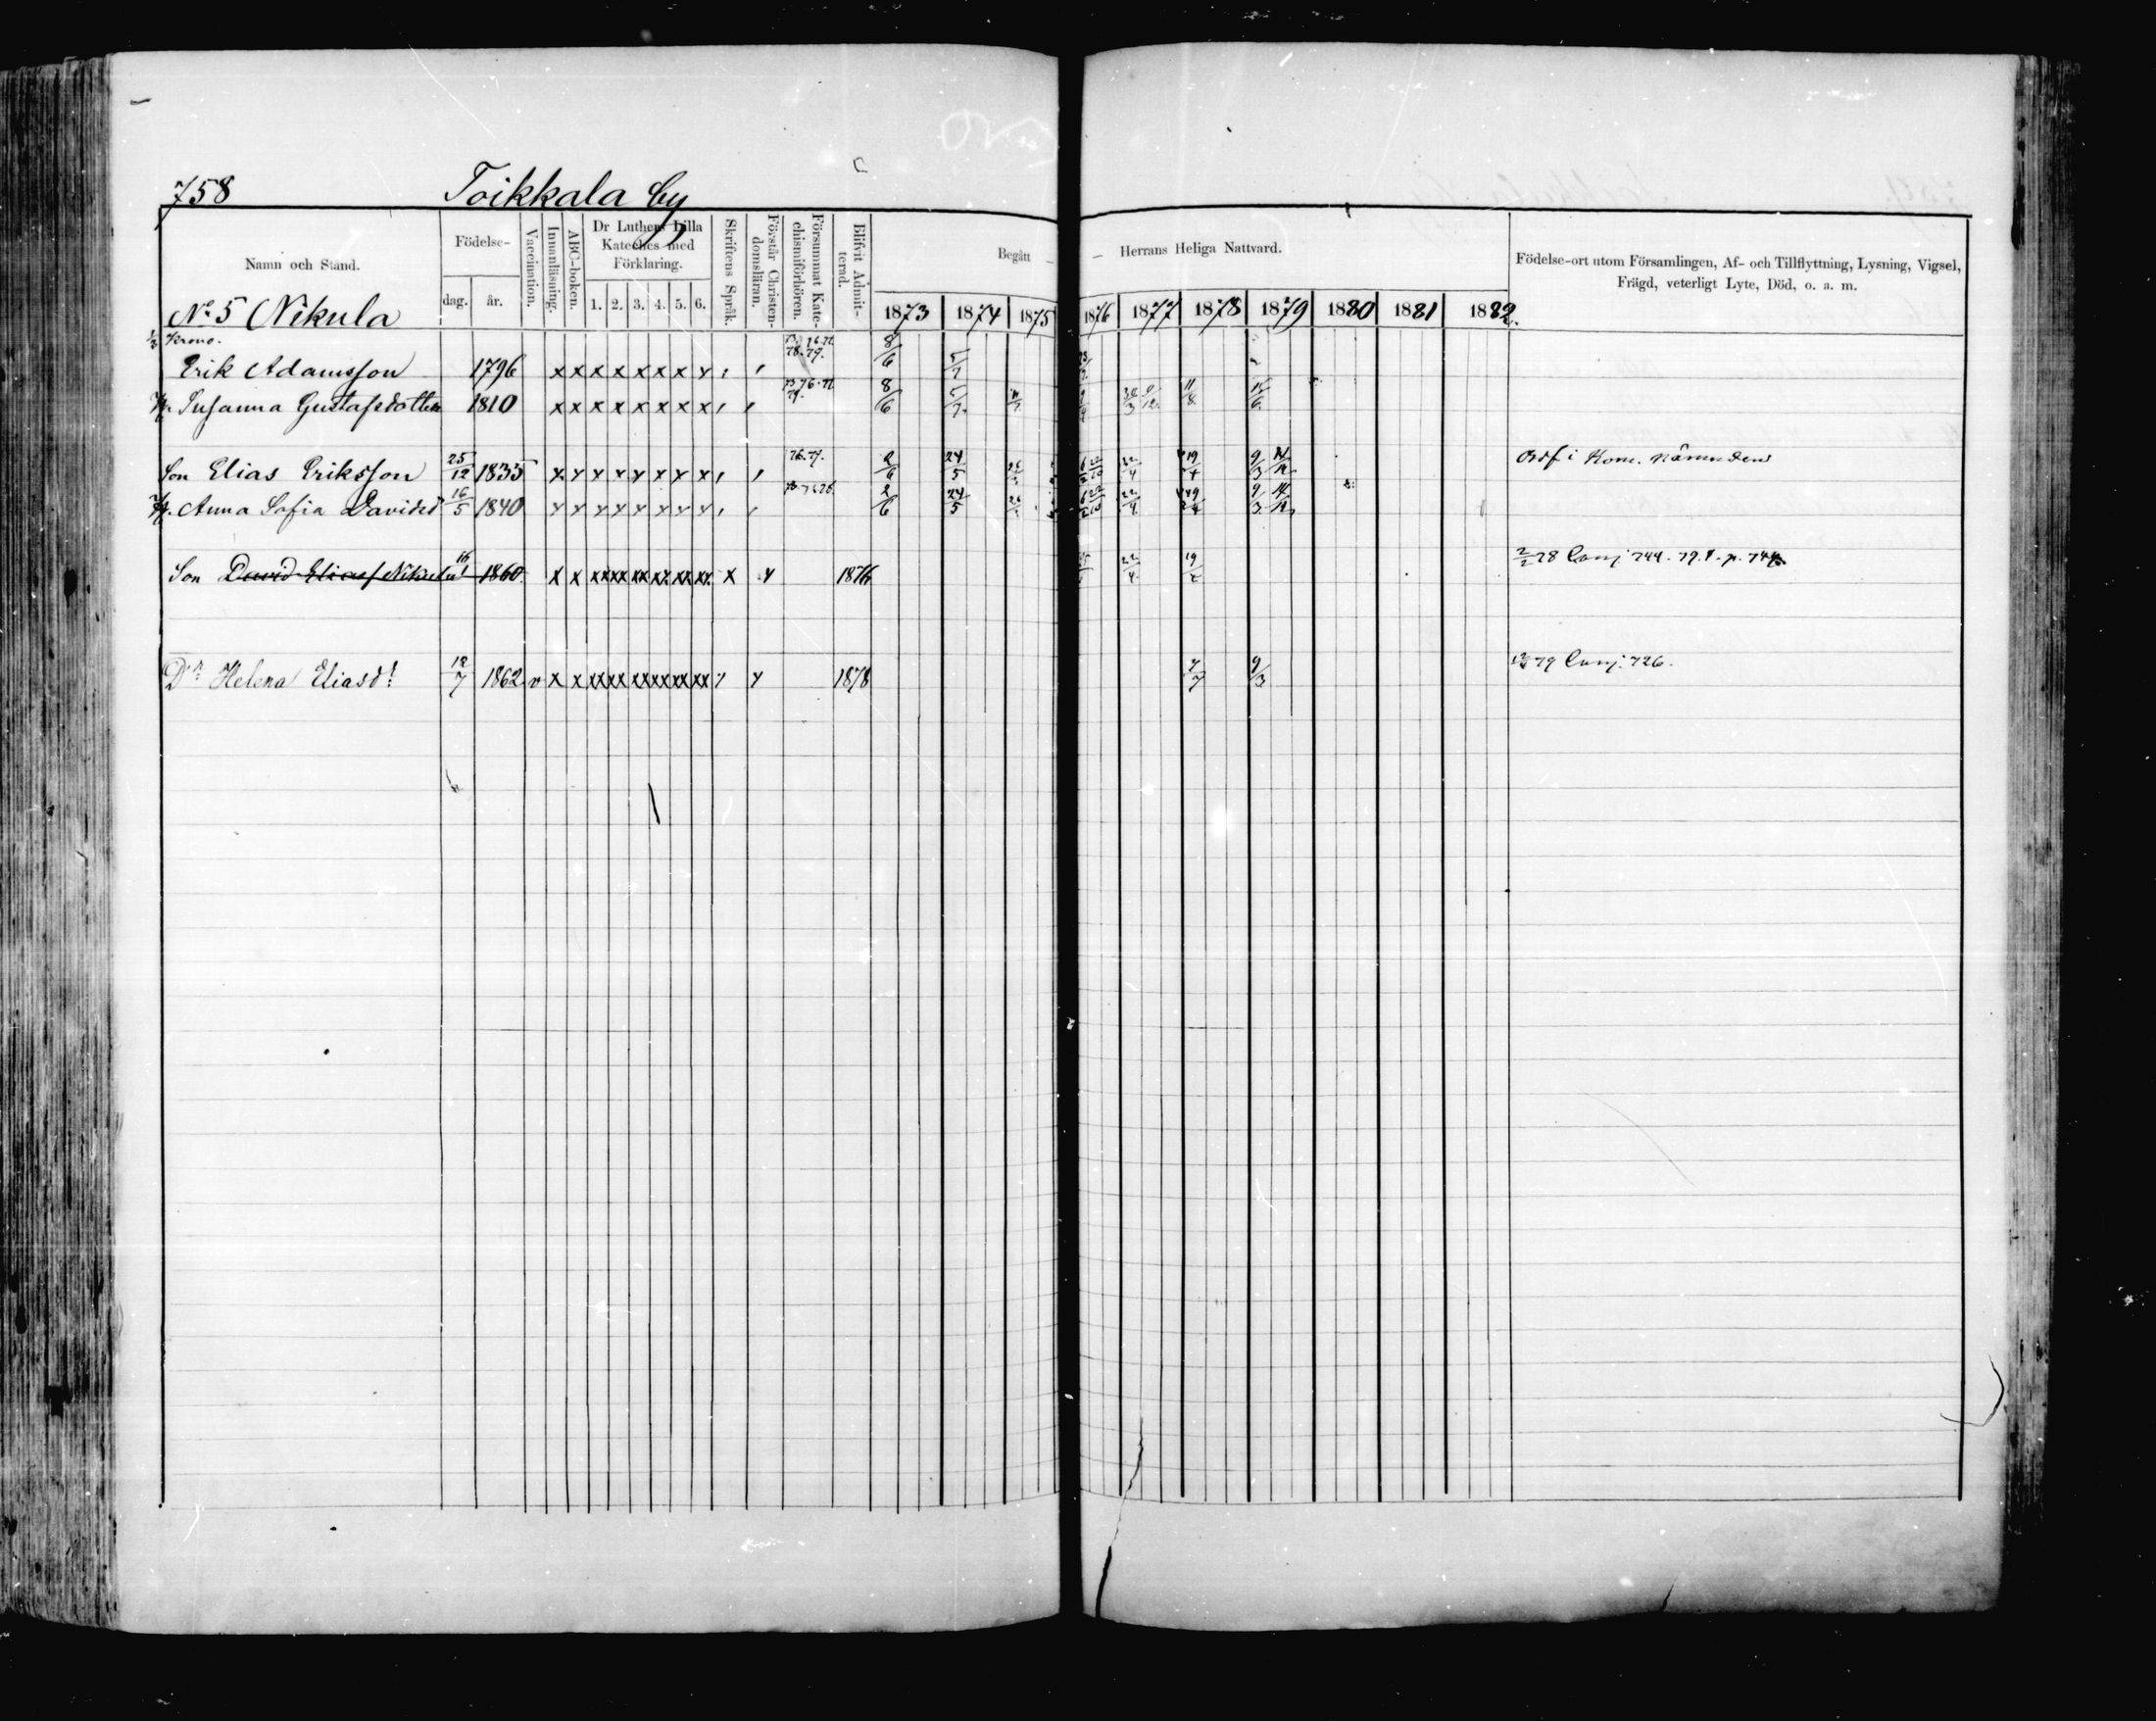 758 Toikkala by
Namn och Stånd. Födelse- dag. år. Vaccination. Innanläsning. ABC-boken. Dr Luthers Lilla Kateches med Förklaring. 1. 2. 3. 4. 5. 6. Skriftens Språk. Förstår Christendomsläran. Försummat Katechismiförhören. Blifvit Admitterad. Begått Herrans Heliga Nattvard. 1873 1874 1875 1876 1877 1878 1879 1880 1881 1882. Födelse-ort utom Församlingen, Af- och Tillflyttning, Lysning, Vigsel,
Frägd, veterligt Lyte, Död, o. a. m.
No 5 Nikula
Krono.
Erik Adamsson 1796 x x x x x x x x 8/6 5/7
Susanna Gustafsdotter 1810 x x x x x x x x 8/6 5/7 11/8
Son Elias Eriksson 25/12 1835 x x x x x x x x 76. 77. 2/6 24/5 22/4 19/4 9/3 Ordf i Kom. nämnden
Anna Sofia Davidsd 16/5 1840 x x x x x x x x 2/6 24/5 22/4 9/3
Son David Eliass Nikula 1860 x x xx xx xx xx xx xx x x 1876 22/4 19/4 2/2 78 Conj. 744. 79.
Dr Helena Eliasdr 12/7 1862 v x x xx xx xx xx xx xx 1878 7/7 9/3 79 Conj. 726.